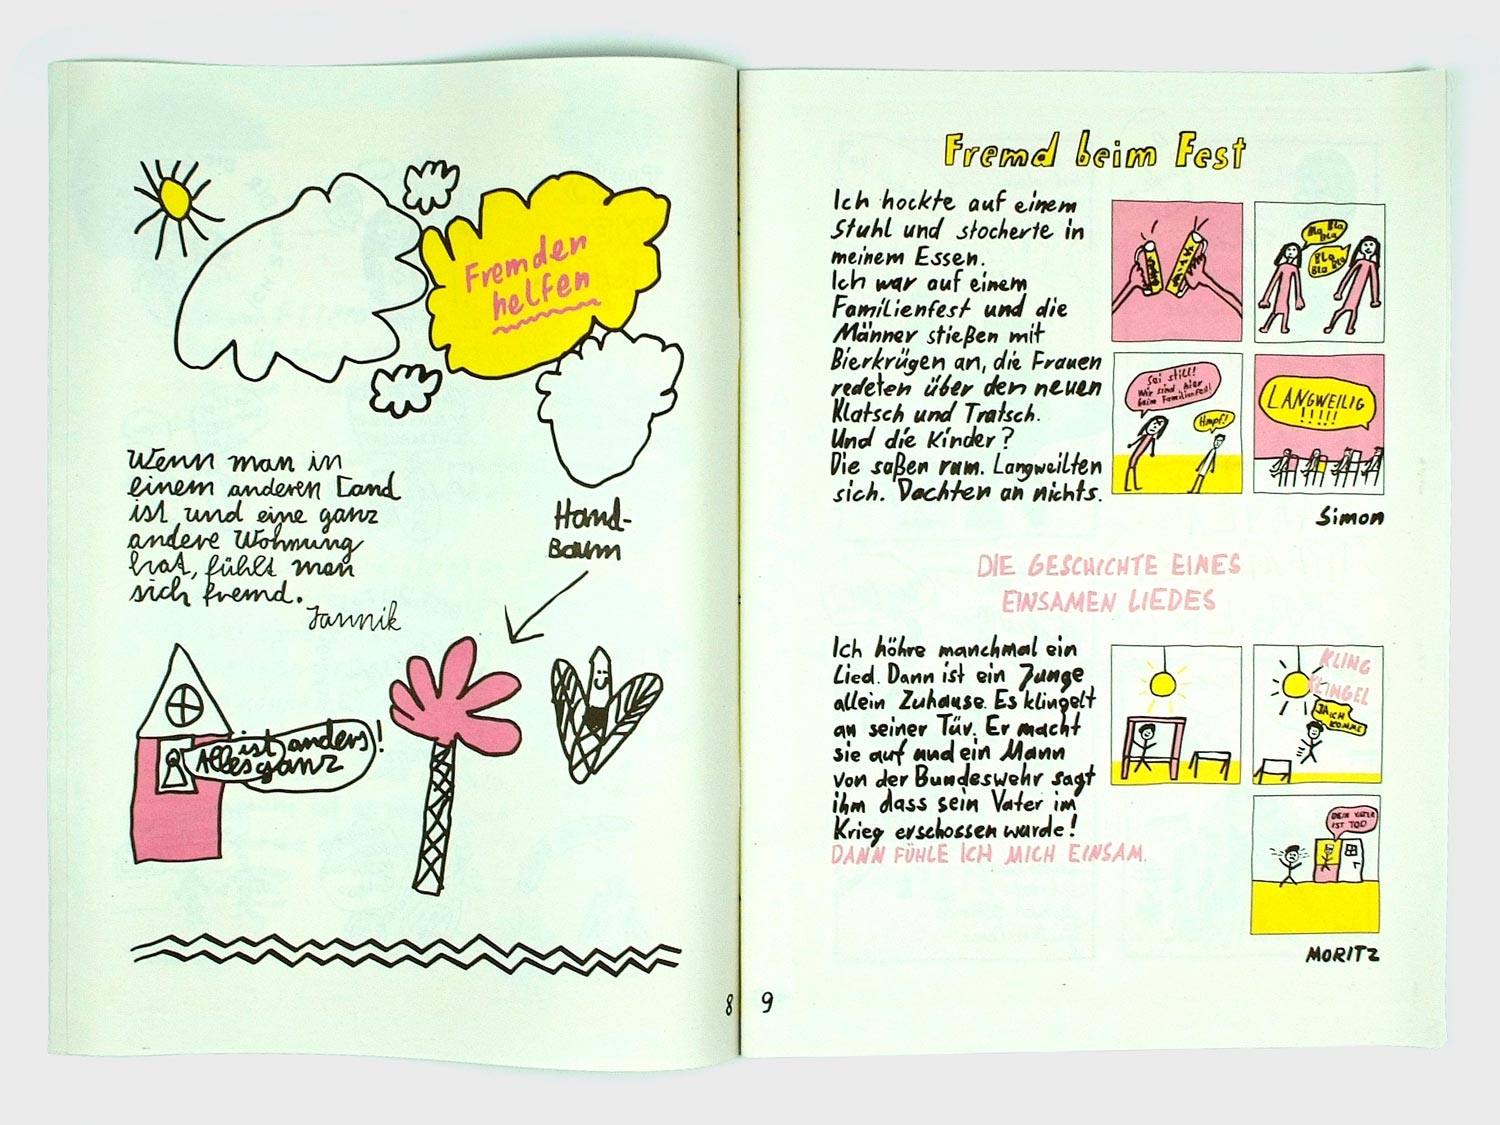 Fremden
helfen
Wenn man in
einem anderen Land
ist und eine ganz
andere Wohnung
hat, fühlt man
sich fremd.
Jannik
Hand-
Baum
Alles ist ganz anders!
8
Fremd beim Fest
Ich hockte auf einem
Stuhl und stocherte in
meinem Essen.
Ich war auf einem
Familienfest und die
Männer stießen mit
Bierkrügen an, die Frauen
redeten über den neuen
Klatsch und Tratsch.
Und die Kinder?
Die saßen rum. Langweilten
sich. Dachten an nichts.
Bla Bla
Bla
Bla
Bla Bla
Sei still!
Wir sind hier
beim Familienfest!
Hmpf!
LANGWEILIG
!!!!!
Simon
DIE GESCHICHTE EINES
EINSAMEN LIEDES
Ich höhre manchmal ein
Lied. Dann ist ein Junge
allein Zuhause. Es klingelt
an seiner Tür. Er macht
sie auf und ein Mann
von der Bundeswehr sagt
ihm dass sein Vater im
Krieg erschossen wurde!
DANN FÜHLE ICH MICH EINSAM.
KLING
KLINGEL
JA ICH
KOMME
DEIN VATER
IST TOD
MORITZ
9